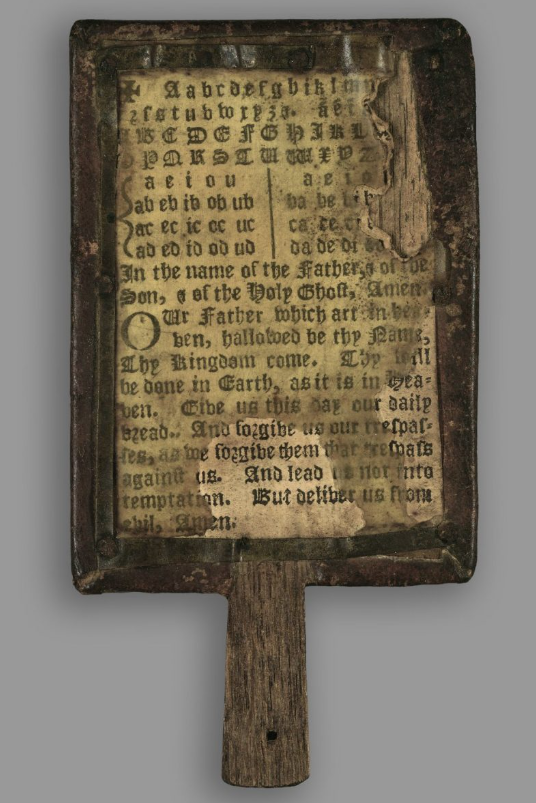 ✠ Aabcdefghiklmn
ꝛſstuvwxyzꝛ. ãẽĩ
ABCDEFGHIKL
PQRSTUWXYZ
a e i o u a e i o
ab eb ib ob ub ba be bi b
ac ec ic oc uc ca ce ci
ad ed id od ud da de di
In the name of the Father, & of the
Son, & of the Holy Ghoſt, Amen.
OUr Father which art in hea-
ven, hallowed be thy Name,
Thy Kingdom come. Thy will
be done in Earth, as it is in Hea-
ven. Give us this day our daily
bread. And forgive us our treſpaſ-
ſes, as we forgive them that treſpaſs
againſt us. And lead us not into
temptation. But deliver us from
evil, Amen.